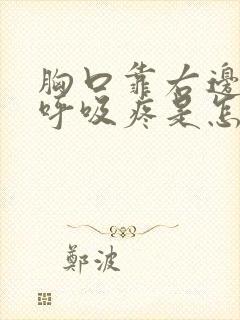 胸口靠右邊
呼吸疼是怎
鄭波